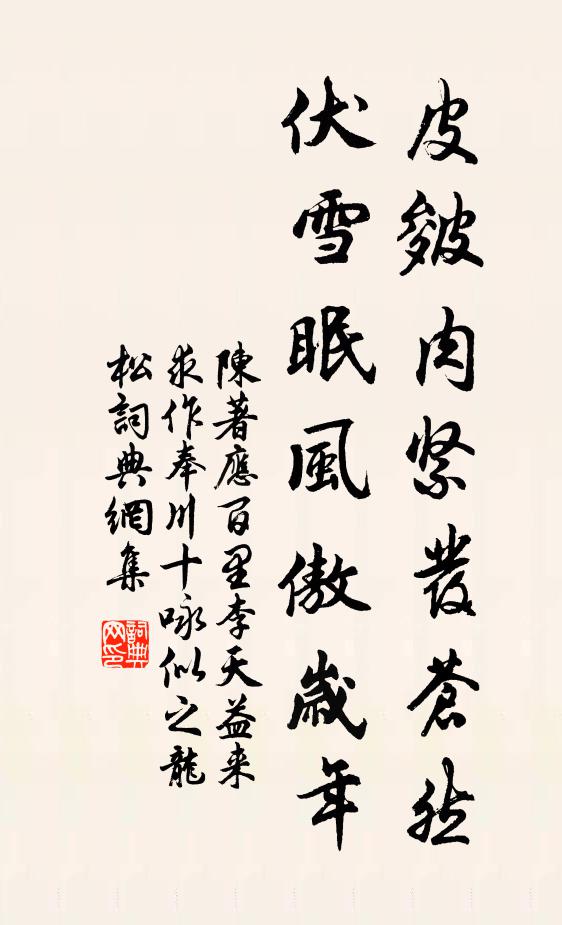 皮皴肉紧發蒼然
伏雪眠風傲歲年
陳著應百里李天益来
求作奉川十咏似之龍
松詞典網集
詞典
网印